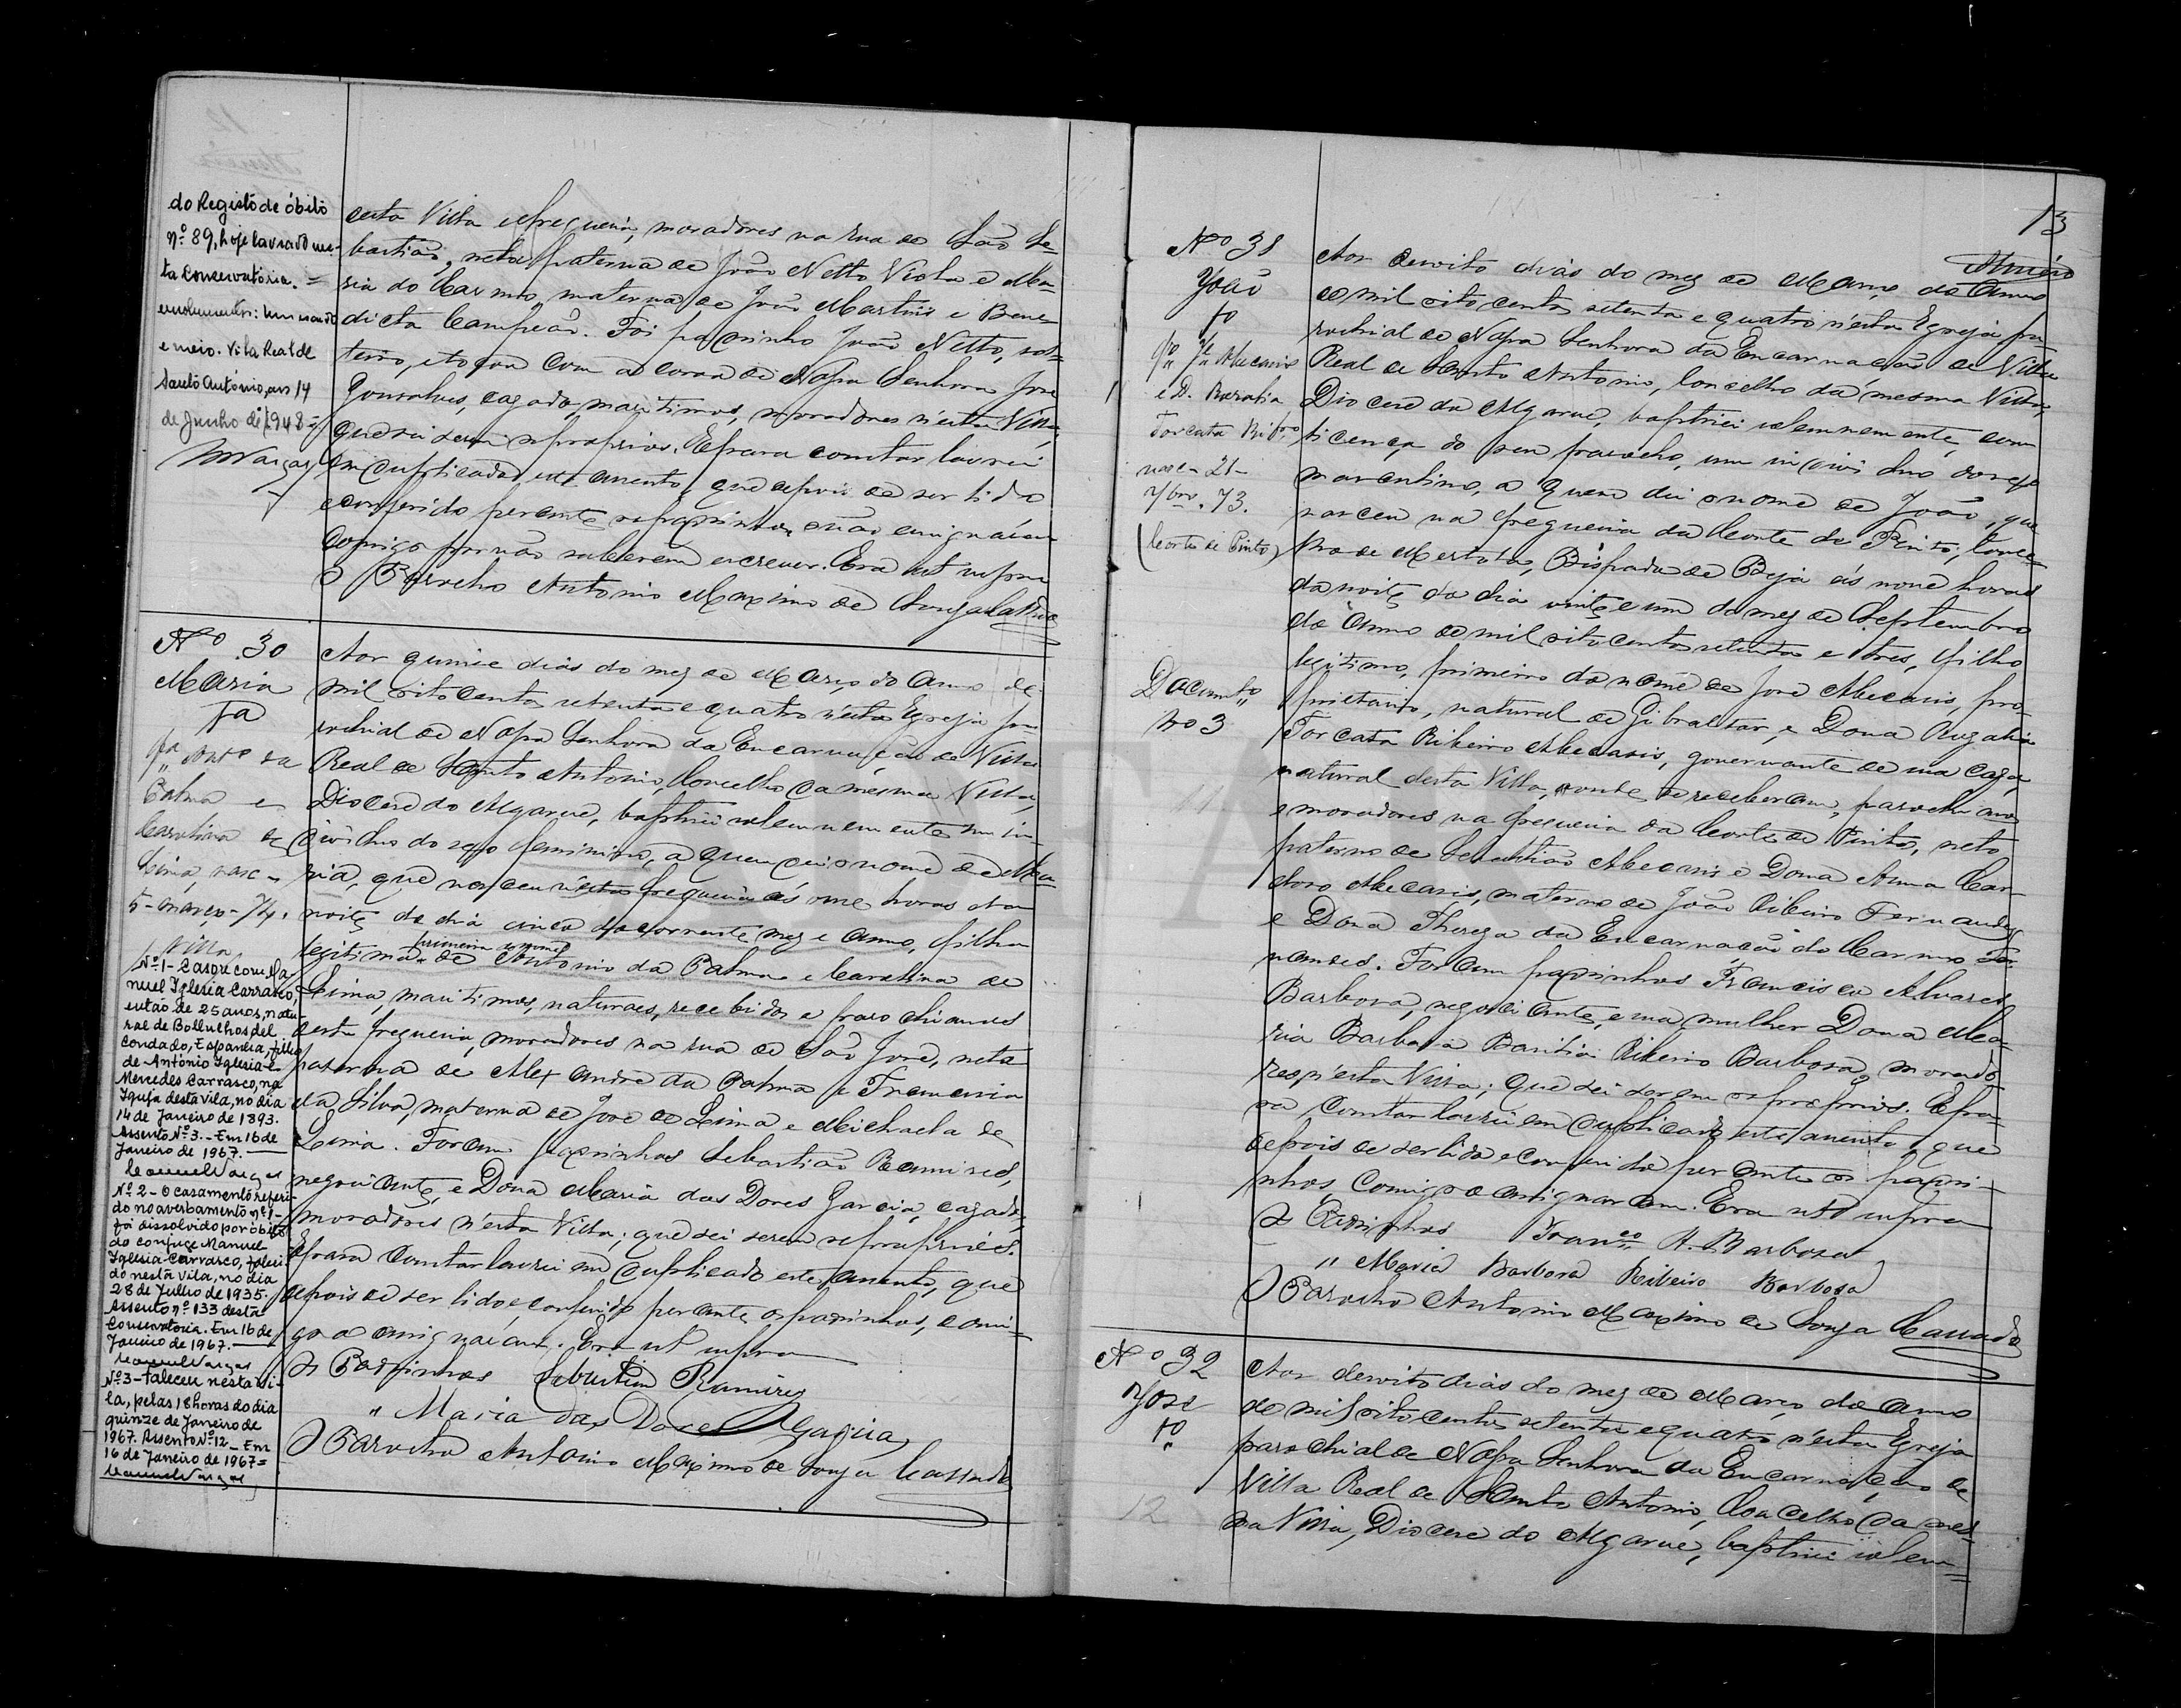 do Registo de óbito
nº 89, hoje lavrado nes-
ta Conservatória. =
emolumentos: um escudo
e meio. Vila Real de
Santo António, aos 14
de Junho de 1948 =
desta Villa e freguezia, moradores na rua de São Se-
bastião, neta paterna de João Netto Viola e Ma-
ria do Carmo, materna de João Martins e Bene-
dicta Campeão. Foi padrinho João Netto, sol-
teiro, e tocou com a coroa de Nossa Senhora José
Gonsalves, cazado, maritimos, moradores n'esta Villa,
que sei serem os proprios. E para constar lavrei
em duplicado este assento, que depois de ser lido
e conferido perante os padrinhos, não assignaram
comigo por não saberem escrever. Era ut supra
O Parocho Antonio Maximo de Souza Callado
Nº 30
Maria
fª
fª Antº da
Palma e
Carolina de
Lima, nasc-
5-março-74.
Villa
Nº 1 - Casou com Ma-
nuel Iglesia Carrasco,
então de 25 anos, natu-
ral de Bollulhos del
Condado, Espanha, filho
de António Iglesia e
Mercedes Carrasco, na
Igreja desta vila, no dia
14 de Janeiro de 1893.
Assento Nº 3. - Em 16 de
Janeiro de 1967. —
Manuel Vargas
Nº 2 - O casamento referi-
do no averbamento nº 1 -
foi dissolvido por óbito
do conjuge Manuel
Iglesia Carrasco, faleci-
do nesta vila, no dia
28 de Julho de 1935.
Assento nº 133 desta
Conservatoria. Em 16 de
Janeiro de 1967. —
Manuel Vargas
Nº 3 - Faleceu nesta vi-
la, pelas 18 horas do dia
quinze de Janeiro de
1967. Assento Nº 12 - Em
16 de Janeiro de 1967 =
Manuel Vargas
Aos quinze dias do mez de Março do anno de
mil oito centos setenta e quatro n'esta Egreja pa-
rochial de Nossa Senhora da Encarnação de Villa
Real de Santo Antonio, Concelho da mesma Villa,
Diocese do Algarve, baptizei solemnemente um in-
dividuo do sexo feminino, a quem dei o nome de Ma-
ria, que nasceu n'esta freguezia ás onze horas da
noite do dia cinco do corrente mez e anno, filha
legitima primeira do nome de Antonio da Palma e Carolina de
Lima, maritimos, naturaes, recebidos e parochianos
desta freguezia, moradores na rua de São José, neta
paterna de Alexandre da Palma e Francisca
da Silva, materna de José de Lima e Michaela de
Lima. Foram padrinhos Sebastião Ramires,
negociante, e Dona Maria das Dores Garcia, cazada,
moradores n'esta Villa; que sei serem os proprios.
E para constar lavrei em duplicado este assento, que
depois de ser lido e conferido perante os padrinhos, comi-
go o assignaram. Era ut supra
Os Padrinhos Sebastian Ramirez
" Maria das Dores Garcia
O Parocho Antonio Maximo de Souza Callado
13
Nº 31
João
fº
fº Jé Abecasis
e D.
Torcata Ribrº
nasc- 21-
7bro. 73.
(Corte do Pinto)
Documto
nº 3
Aos dezoito dias do mez de Março do anno
de mil oito centos setenta e quatro n'esta Egreja pa-
rochial de Nossa Senhora da Encarnação de Villa
Real de Santo Antonio, Concelho da mesma Villa,
Diocese do Algarve, baptizei solemnemente, com
licença do seu parocho, um individuo do sexo
masculino, a quem dei o nome de João, que
nasceu na freguezia da Corte do Pinto, Conce-
lho de Mertola, Bispado de Beja ás nove horas
da noite do dia vinte e um do mez de Septembro
do anno de mil oito centos setenta e tres, filho
legitimo, primeiro do nome de José Abecasis, pro-
prietario, natural de Gibraltar, e Dona
Torcata Ribeiro Abecasis, governante de sua caza,
natural desta Villa, onde se receberam, parochianos
e moradores na freguezia da Corte do Pinto, neto
paterno de Sebastião Abecasis e Dona Anna Car-
doso Abecasis, materno de João Ribeiro Fernandes
e Dona Thereza da Encarnação do Carmo Fer-
nandes. Foram padrinhos Francisco Alvares
Barbosa, negociante, e sua mulher Dona Ma-
ria Barbara Ribeiro Barbosa, morado-
res n'esta Villa; que sei serem os proprios. E pa-
ra constar lavrei em duplicado este assento, que
depois de ser lido e conferido perante os padri-
nhos, comigo o assignaram. Era ut supra
Os Padrinhos Franco A. Barbosa
" Maria Barbosa Ribeiro Barbosa
O Parocho Antonio Maximo de Souza Callado
Nº 32
José
fº
12
Aos dezoito dias do mez de Março do anno
de mil oito centos setenta e quatro n'esta Egreja
parochial de Nossa Senhora da Encarnação de
Villa Real de Santo Antonio, Concelho da mes-
ma Villa, Diocese do Algarve, baptizei solem-